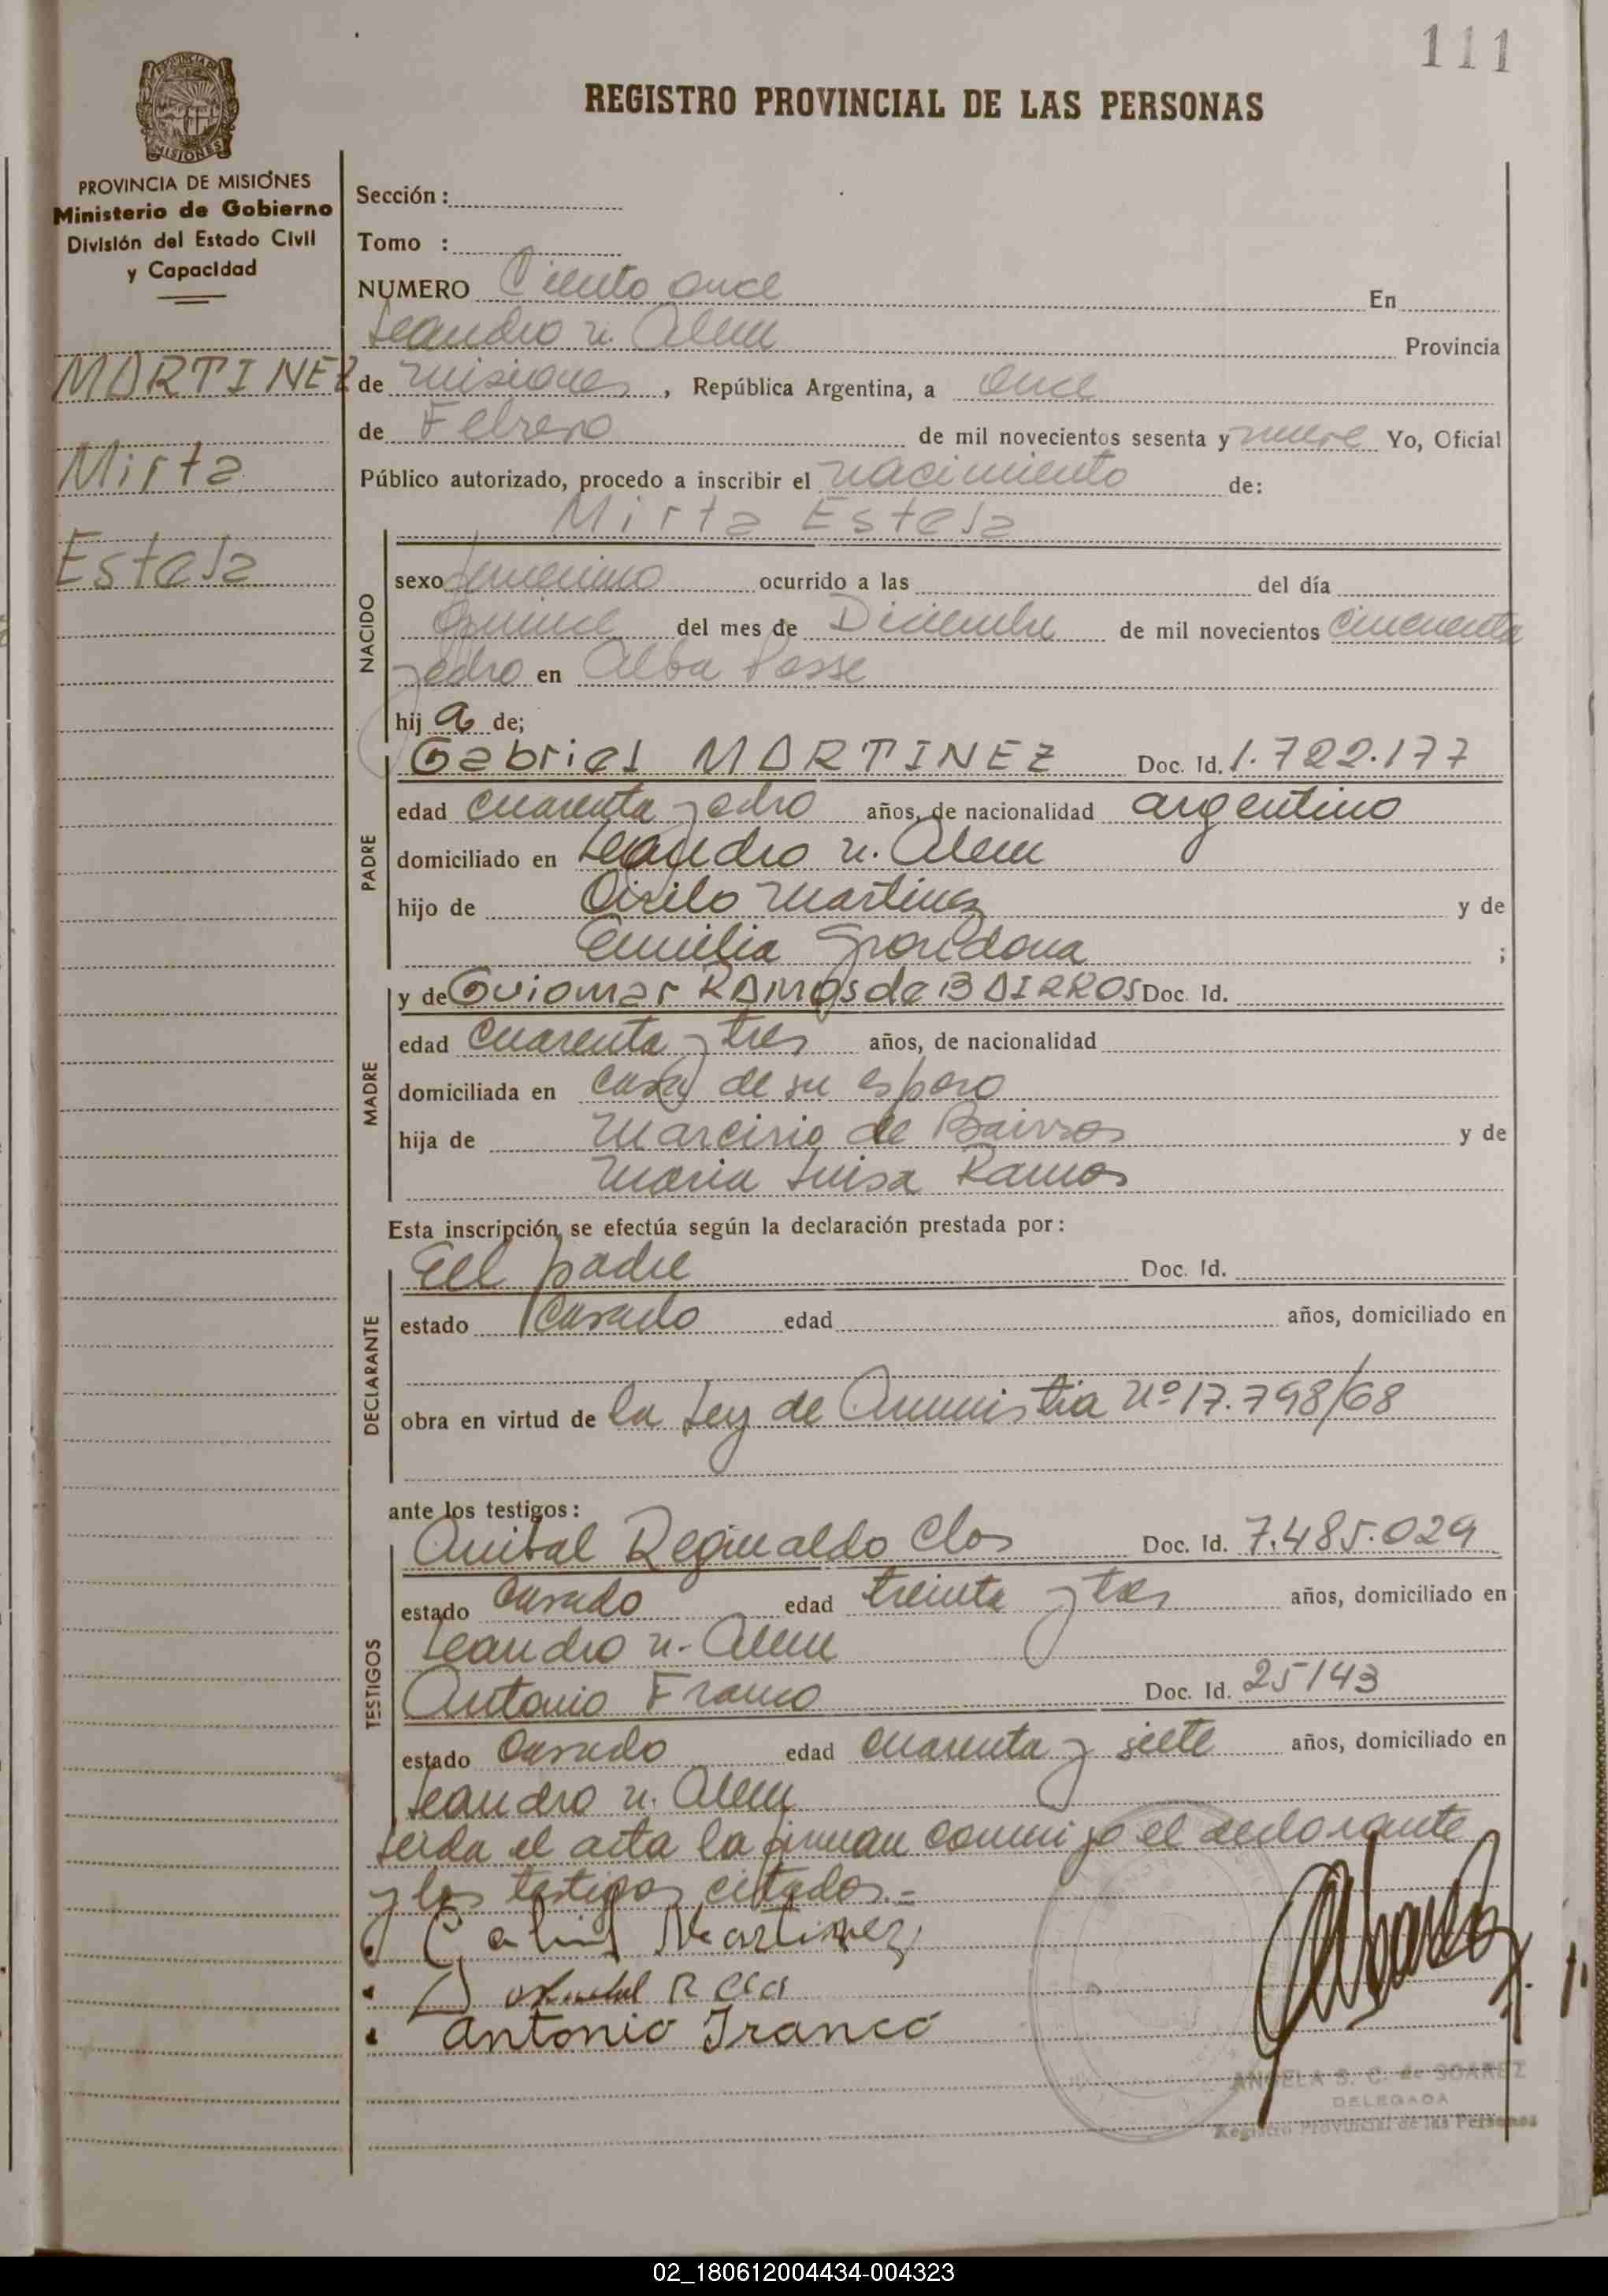 111
REGISTRO PROVINCIAL DE LAS PERSONAS
PROVINCIA DE MISIONES
Ministerio de Gobierno
División del Estado Civil
y Capacidad
MARTINEZ
Mirta
Estela
Sección :
Tomo :
NUMERO Ciento once En
Leandro n. Alem Provincia
de Misiones, República Argentina, a once
de Febrero de mil novecientos sesenta y nueve Yo, Oficial
Público autorizado, procedo a inscribir el nacimiento de:
Mirta Estela
NACIDO
sexo femenino ocurrido a las del día
Quince del mes de Diciembre de mil novecientos cincuenta
y ocho en Alba Posse
hij a de;
PADRE
Gabriel MARTINEZ Doc. Id. 1.722.177
edad cuarenta y ocho años, de nacionalidad argentino
domiciliado en Leandro n. Alem
hijo de Martinez y de
Emilia Grondona ;
MADRE
y de Guiomar RAMOS de BAIRROS Doc. Id.
edad cuarenta y tres años, de nacionalidad
domiciliada en casa de su esposo
hija de Marcirio de Bairros y de
Maria Luisa Ramos
Esta inscripción se efectúa según la declaración prestada por :
DECLARANTE
El padre Doc. Id.
estado casado edad años, domiciliado en
obra en virtud de la Ley de Amnistia Nº 17.798/68
ante los testigos :
TESTIGOS
Anibal Reginaldo Clos Doc. Id. 7.485.029
estado casado edad treinta y tres años, domiciliado en
Leandro n. Alem
Antonio Franco Doc. Id. 25143
estado casado edad cuarenta y siete años, domiciliado en
Leandro n. Alem
Leida el acta la firman conmigo el declarante
y los testigos citados.=
Gabriel Martinez
R Clos
Antonio Franco
ANGELA S. C. de SOAREZ
DELEGADA
Registro Provincial de las Personas
02_180612004434-004323